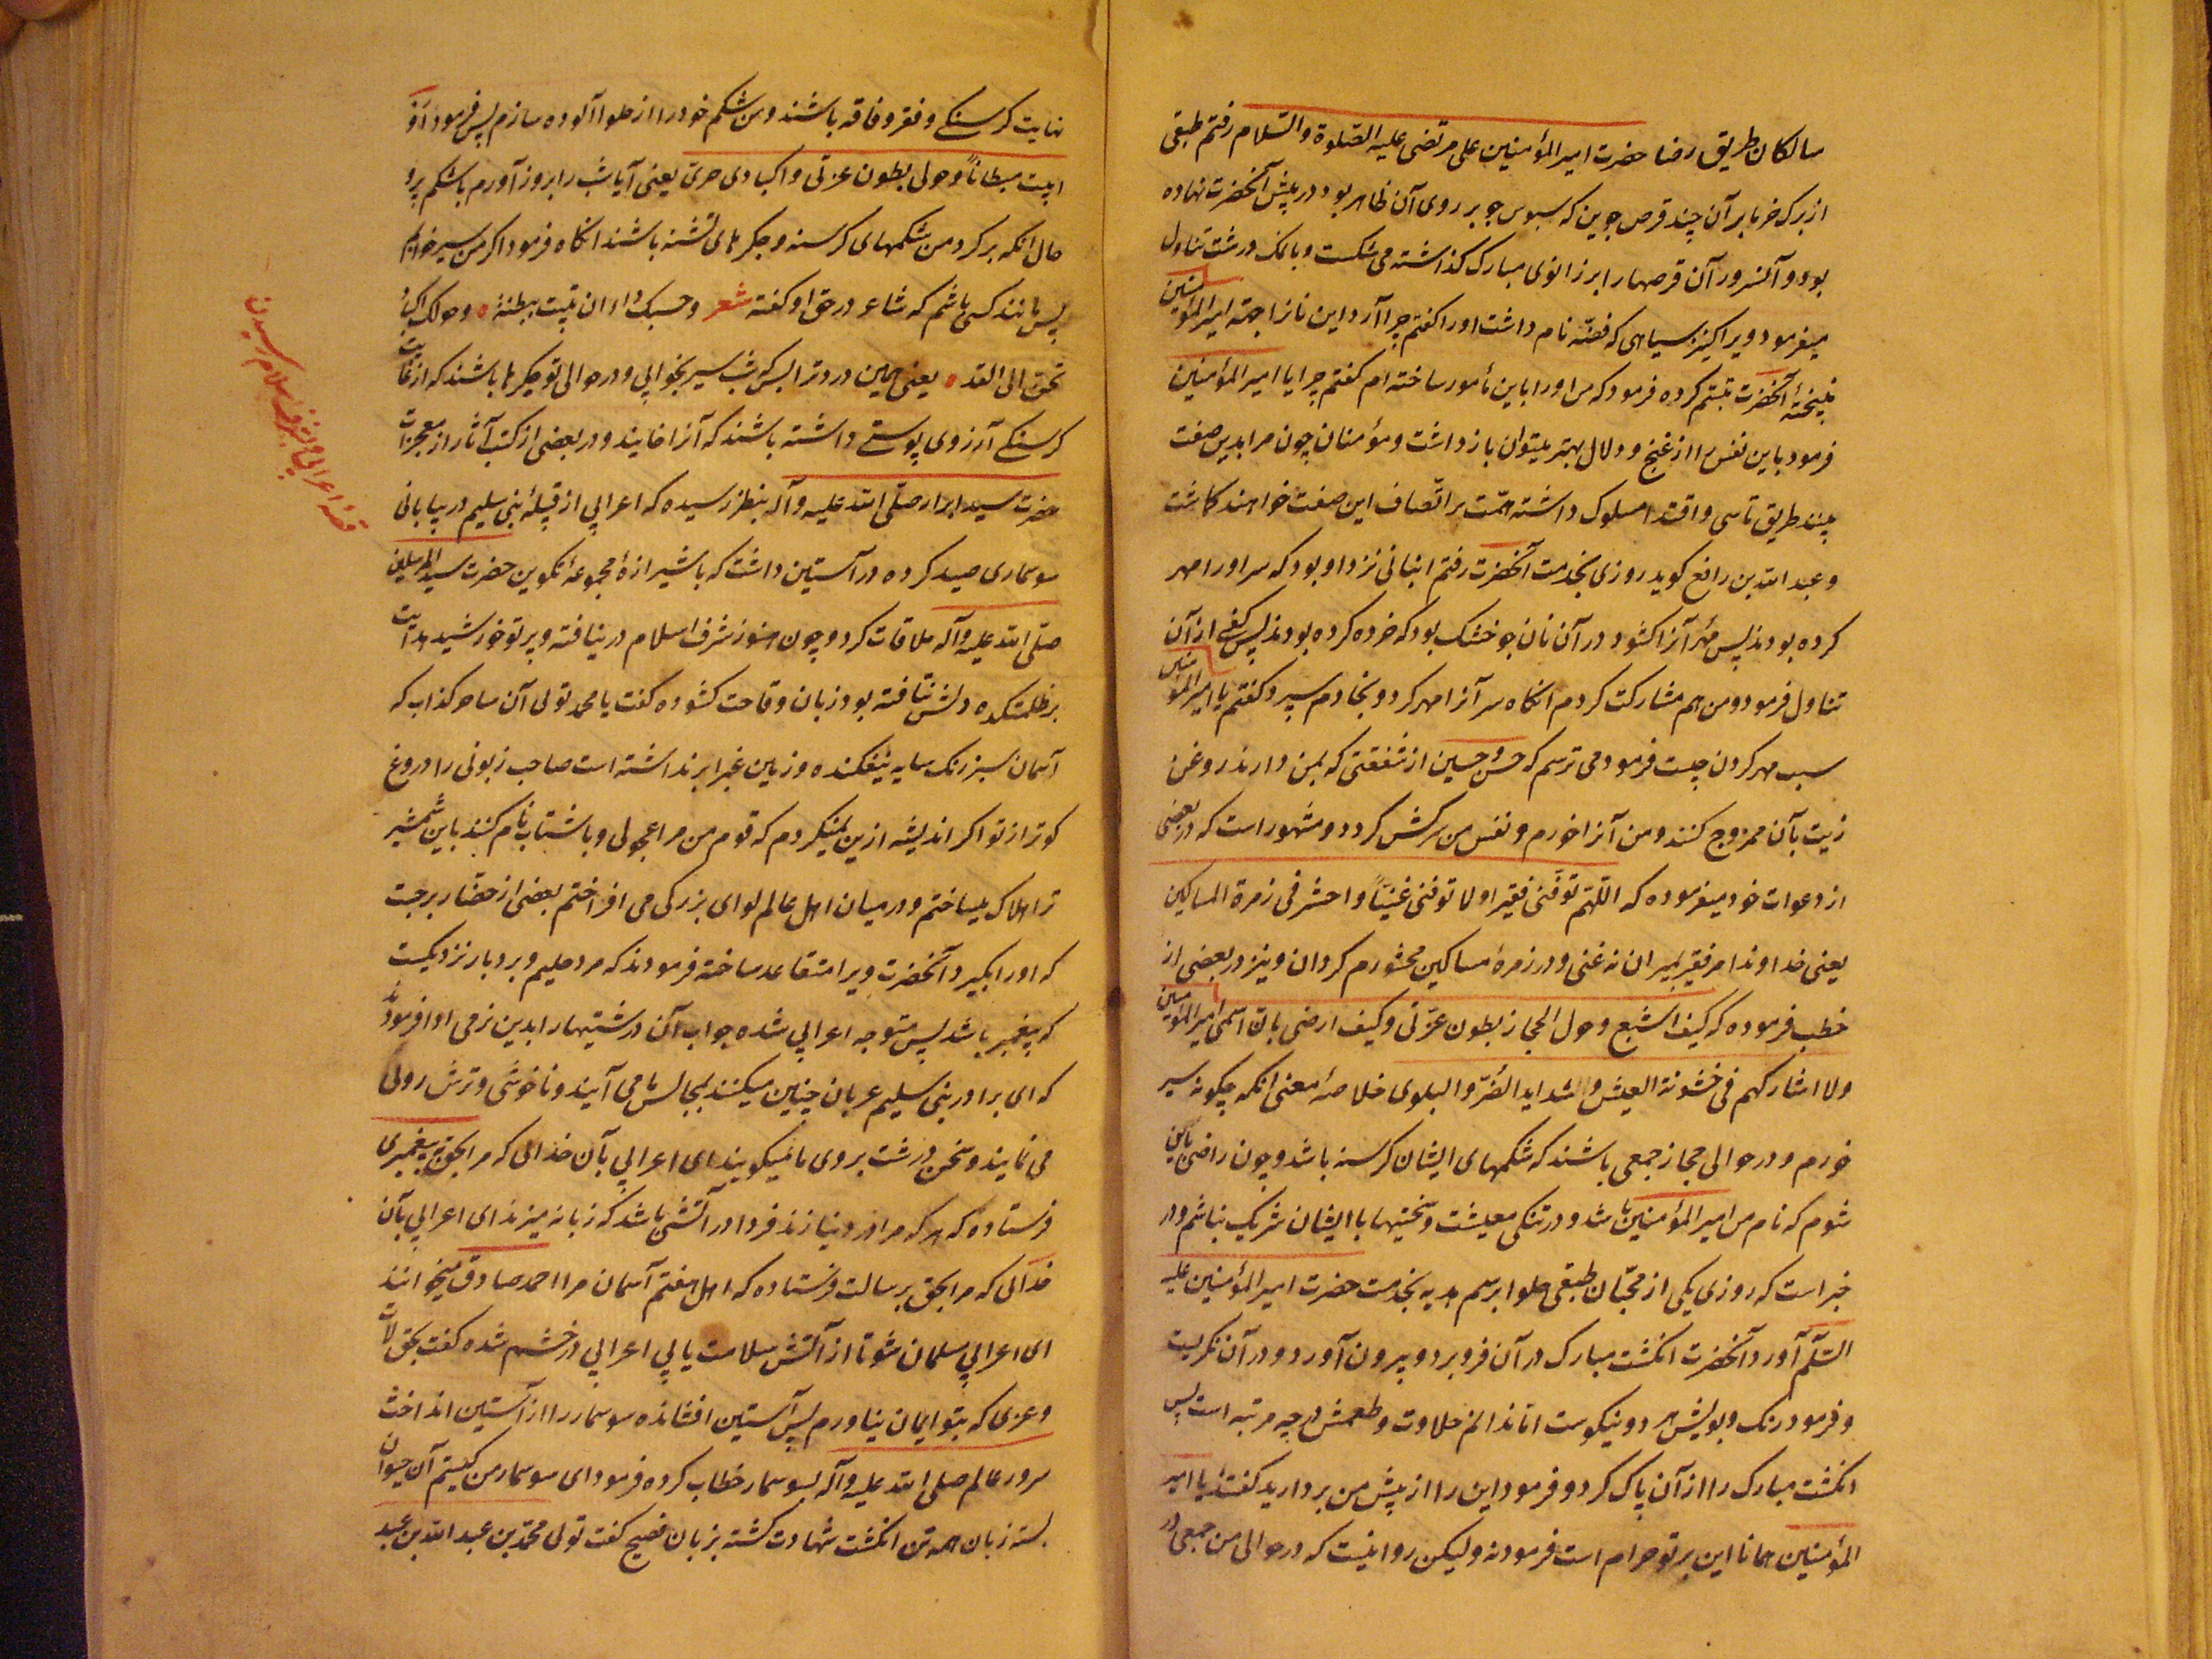 سالکان طریق رضا حضرت امیرالمؤمنین علی مرتضی علیه الصلوة والسلام رفتم طبقی
از برک خرما بر آن چند قرص جوین که سبوس جو بر روی آن ظاهر بود در پیش آنحضرت نهاده
بود و آنسرور آن قرصها را بر زانوی مبارک کذاشته می شکست و با نمک درشت تناول
میفرمود ویرا کنیز سیاهی که فضه نام داشت او را کفتم چرا آرد این نانرا جهة امیرالمؤمنین
نبیختهٔ آنحضرت تبسّم کرده فرمود که من او را باین مأمور ساخته ام کفتم چرا یا امیرالمؤمنین
فرمود باین نفس را از غنج و دلال بهتر میتوان بازداشت و مؤمنان چون مرا بدین صفت
بینند طریق تاسی و اقتدا مسلوک داشته همّت بر اتّصاف این صفت خواهند کاشت
و عبدالله بن رافع کوید روزی بخدمت آنحضرت رفتم انبانی نزد او بود که سر او را مهر
کرده بودند پس مهر آنرا کشود در آن نان جو خشک بود که خرده کرده بودند پس کفی از آن
تناول فرمود و من هم مشارکت کردم انکاه سر آنرا مهر کرد و بخادم سپرد کفتم یا امیرالمؤمنین
سبب مهر کردن چیست فرمود می ترسم که حسن و حسین از شفقتی که بمن دارند روغن
زیت بآن ممزوج کنند و من آنرا خورم و نفس من سرکش کردد و مشهور است که در بعضی
از دعوات خود میفرموده که اللّهم توفّنی فقیرا و لا توفنی غنیّاً و احشرنی فی زمرة المساکین
یعنی خداوندا مرا فقیر بمیران نه غنی و در زمرهٔ مساکین محشورم کردان و نیز در بعضی از
خطب فرموده که کیف اشبع و حول الحجاز بطون غرثی و کیف ارضی بان اسمی امیرالمؤمنین
ولا اشارکهم فی خشونة العیش و الشداید الضرّ و البلوی خلاصهٔ معنی انکه چکونه سیر
خورم و در حوالی حجاز جمعی باشند که شکمهای ایشان کرسنه باشد و چون راضی باین
شوم که نام من امیرالمؤمنین باشد و در تنکی معیشت و سختیها با ایشان شریک نباشم و در
خبر است که روزی یکی از محبّان طبقی حلوا برسم هدیه بخدمت حضرت امیرالمؤمنین علیه
السّلم آورد آنحضرت انکشت مبارک در آن فرو برد و بیرون آورد و در آن نکریست
و فرمود رنک و بویش هر دو نیکوست اما ندانم حلاوت و طعمش در چه مرتبه است پس
انکشت مبارک را از آن پاک کرد و فرمود این را از پیش من بردارید کفتند یا امیر
المؤمنین همانا این بر تو حرام است فرمود نه ولیکن روا نیست که در حوالی من جمعی در
نهایت کرسنکی و فقر و فاقه باشند و من شکم خود را از حلوا آلوده سازم پس فرمود او
ابیت مبطاناً و حولی بطون غرثی و اکباد حری یعنی آیا شب را بروز آورم با شکم پر و
حال انکه بر کرد من شکمهای کرسنه و جکرهای تشنه باشند انکاه فرمود اکر من سیر خوابم
پس مانند کسی باشم که شاعر در حق او کفته شعر و حسبک داء ان تبیت ببطنة و حولک اکباد
تحن الی القد یعنی همین درد ترا بس که شب سیر بخوابی و در حوالی تو جکرها باشند که از غایت
کرسنکی آرزوی پوستی داشته باشند که آنرا خایند و در بعضی از کتب آثار از معجزات
حضرت سید ابرار صلّی الله علیه و آله بنظر رسیده که اعرابی از قبیلهٔ بنی سلیم در بیابانی
سوسماری صید کرده در آستین داشت که با شیرازهٔ مجموعه تکوین حضرت سیدالمرسلین
صلّی الله علیه و آله ملاقات کرد و چون هنوز شرف اسلام در نیافته و پرتو خورشید هدایت
بر ظلمتکده دلش نتافته بود زبان وقاحت کشوده کفت یا محمد تولی آن ساحر کذاب که
آسمان سبز رنک سایه نیفکنده و زمین غبرا بر نداشته است صاحب زبونی را دروغ
کوتر از تو اکر اندیشه ازین نمیکردم که قوم من مرا عجولی و با شتاب نام کنند باین شمشیر
ترا هلاک میساختم و در میان اهل عالم لوای بزرکی می افراختم بعضی از حضّار برجست
که او را بکیرد آنحضرت ویرا متقاعد ساخته فرمودند که مرد حلیم و بردبار نزدیکست
که پیغمبر باشد پس متوجه اعرابی شده جواب آن درشتیها را بدین نرمی ادا فرمود
که ای برادر بنی سلیم عربان چنین میکنند بمجالس ما می آیند و ناخوشی و ترش رولی
می نمایند و سخن درشت بروی ما میکویند ای اعرابی بآن خدالی که مرا بحق پیغمبری
فرستاده که هر که مرا در دنیا زند فردا در آتشی باشد که زبانه میزند ای اعرابی بآن
خدالی که مرا بحق برسالت فرستاده که اهل هفتم آسمان مرا احمد صادق میخوانند
ای اعرابی مسلمان شو تا از آتش سلامت یابی اعرابی در خشم شده کفت بحق لات
و عزی که بتو ایمان نیاورم پس آستین افشانده سوسمار را از آستین انداخت
سرور عالم صلی الله علیه و آله بسوسمار خطاب کرده فرمود ای سوسمار من کیستم آن حیوان
بسته زبان همه تن انکشت شهادت کشته بزبان فصیح کفت تولی محمّد بن عبدالله بن عبد
قصهٔ اعرابی و بشرف اسلام رسیدن